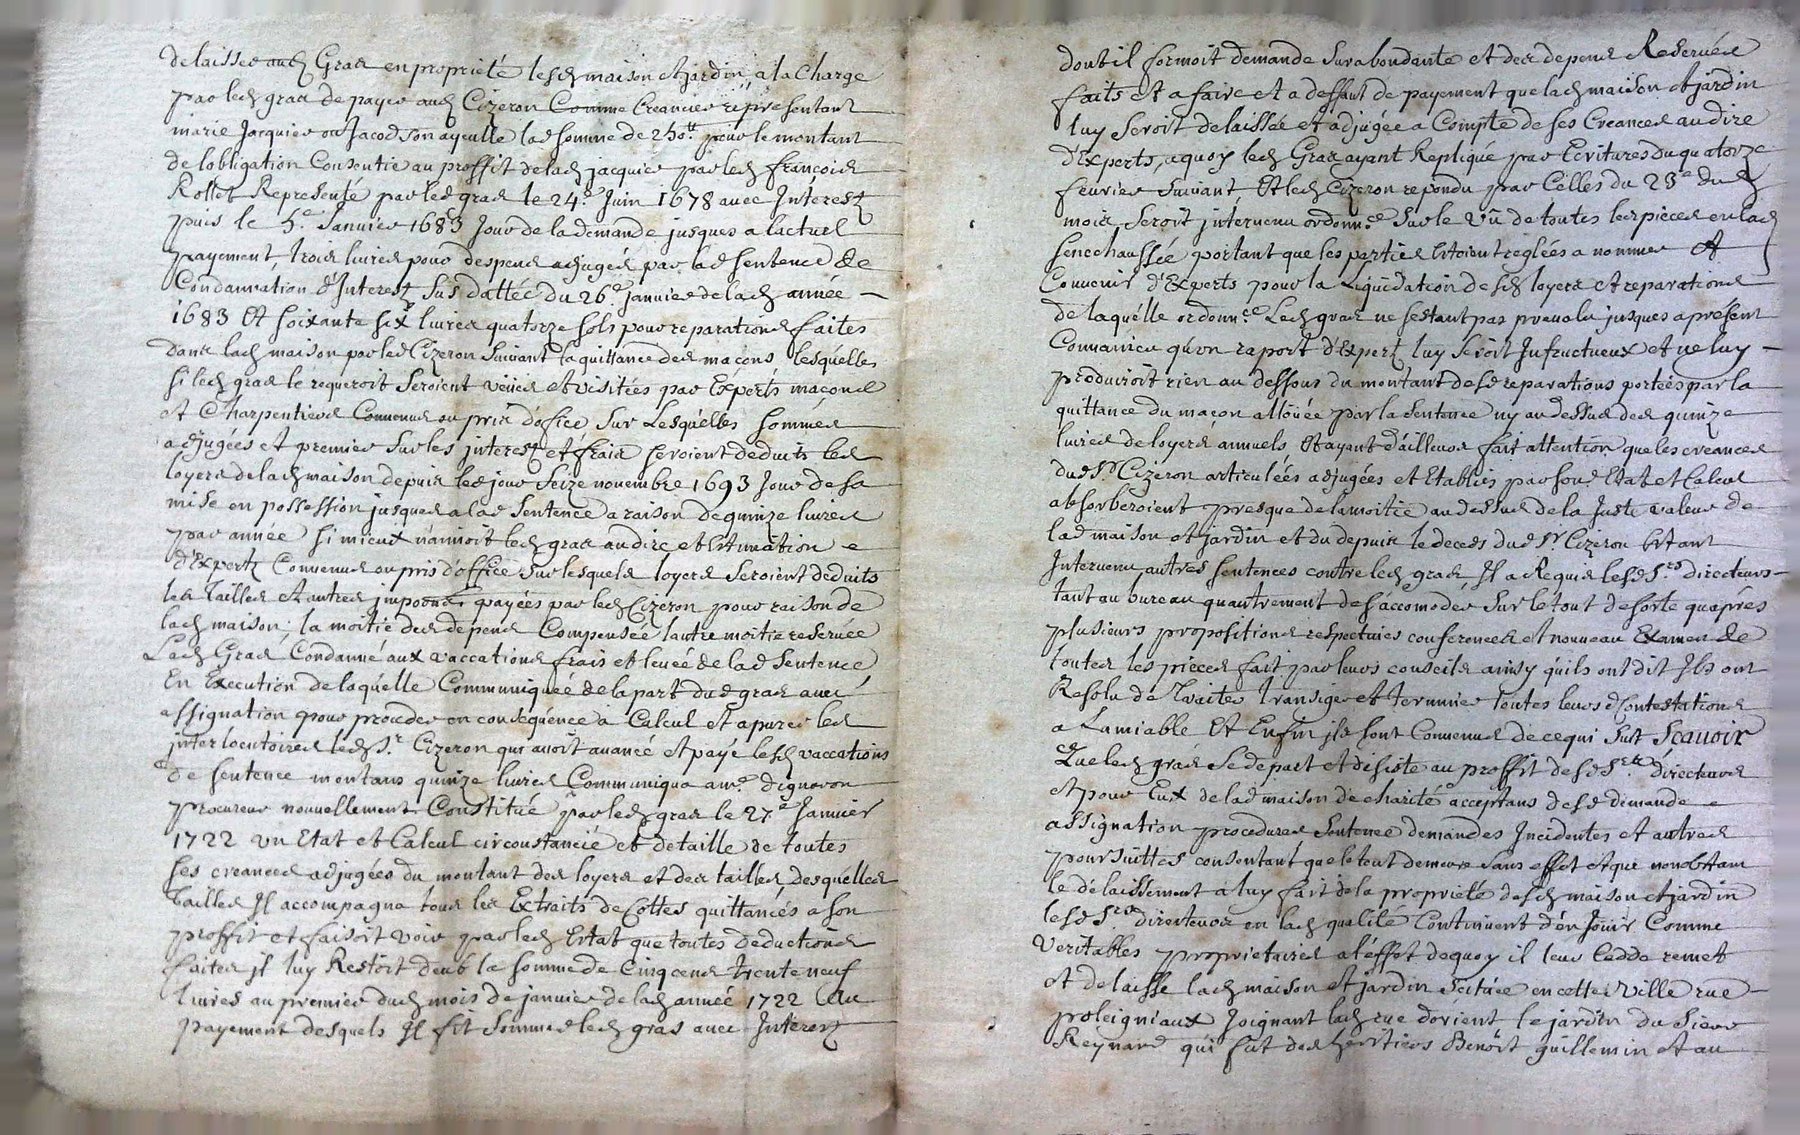 delaisser aud Gras en propriété lesd maison et jardin a la Charge
par led gras de payer aud Cizeron Comme Creancier représentant
marie Jacquier ou Jacod son ayeulle lad somme de 250tt pour le montant
de lobligation Consentie au proffit de lad jacquier par led françois
Rollet Representé par led gras le 24e Juin 1678 avec Interest
puis le 5e Janvier 1683 Jour de la demande jusques a lactuel
payement, trois livres pour despens adjugés par lad sentence de
Condannation d'Interest sus dattée du 26e janvier de lad année
1683 Et soixante six livres quatorze sols pour reparations faites
dans lad maison par led Cizeron suivant la quittance des maçons lesquelles
si led gras le requeroit seroient veües et visitées par Experts maçons
et Charpentiers Convenus ou pris d'office sur Lesquelles sommes
adjugées et premier sur les interest et frais seroient deduits les
loyers de lad maison depuis led jour seize novembre 1693 Jour de sa
mise en possession jusques a lad sentence a raison de quinze livres
par année si mieux n'aimoit led gras au dire et Estimation
d'Expertz Convenus ou pris d'office sur lesquels loyers seroient deduits
les Tailles et autres impots payées par led Cizeron pour raison de
lad maison; la moitié des depens Compensée lautre moitié reservée
Led Gras Condanné aux vaccations frais et levée de lad sentence
En Execution de laquelle Communiquée de la part dud gras avec
assignation pour proceder en consequence a Calcul et apurer les
interlocutoires led Sr Cizeron qui avoit avancé et payé lesd vaccations
de sentence montans quinze livres Communiqua a me dignoron
procureur nouvellement Constitué par led gras le 27e Janvier
1722 un Etat et Calcul circonstancié et detaille de toutes
ses creances adjugées du montant des loyers et des tailles desquelles
Tailles Il accompagna tous les Extraits de Cottes quittancés a son
proffit et faisoit voir par led Estat que toutes deductions
faites il luy Restoit deub la somme de Cinq cens trente neuf
livres au premier dud mois de janvier de lad année 1722 Au
payement desquels Il fit sommer led gras avec Interest
dont il formoit demande surabondante et des depens Reservés
faits et a faire et a deffaut de payement que lad maison et jardin
luy seroit delaissée et adjugée a Compte de ses Creances au dire
d'Experts, a quoy led Gras ayant Repliqué par Ecritures du quatorze
fevrier suivant Et led Cizeron repondu par Celles du 23e dud
mois seroit intervenu ordonnce sur le vû de toutes les pieces en lad
senechaussée portant que les parties Estoient reglées a nommer et
Convenir d'Experts pour la Liquidation desd loyers et reparations
de laquelle ordonnce Led gras ne sestant pas prevalu jusques a présent
Convaincu qu'un raport d'Expert luy seroit Infructueux et ne luy
produiroit rien au dessous du montant desd reparations portées par la
quittance du maçon allouée par la sentence ny au dessus des quinze
livres de loyers annuels, Et ayant d'ailleurs fait attention que les creances
dud Sr Cizeron articulées adjugées et Etablies par sond Etat et Calcul
absorberoient presque de la moitié au dessus de la Juste valeur de
lad maison et jardin et du depuis le deceds dud Sr Cizeron Estant
Intervenu autres sentences contre led gras, Il a Requis lesd Srs directeurs
tant au bureau quautrement de s'accomoder sur le tout de sorte quaprès
plusieurs propositions respectives conferences et nouveau Examen de
toutes les pieces fait par leurs conseils ainsy quils ont dit Ils ont
Resolu de Traiter transiger et terminer toutes leurs Contestations
a Lamiable Et Enfin ils sont Convenus de ce qui suit Scavoir
Que led gras se depart et desiste au proffit desd Srs directeurs
et pour Eux de lad maison de charité acceptans desd demande
assignation procedures sentence demandes Incidentes et autres
poursuittes consentant que le tout demeure sans effet et que nonobstant
le délaissement a luy fait de la proprieté desd maison et jardin
lesd Srs directeurs en lad qualité Continuent d'en Jouir Comme
Veritables proprietaires a l'effet de quoy il leur Cedde remet
et delaisse lad maison et jardin scituée en cette Ville rue
poleigniaux Joignant lad rue d'orient le jardin du Sieur
Reynard qui fut des heritiers Benoit guillemin et au